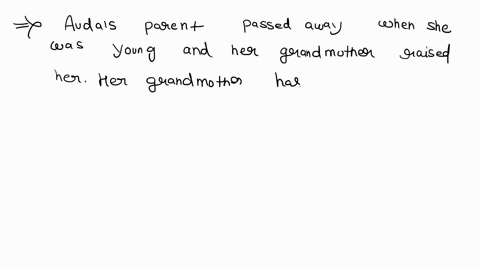 ⇒ Audais parent passed away when she
was young and her grandmother raised
her. Her grandmother has